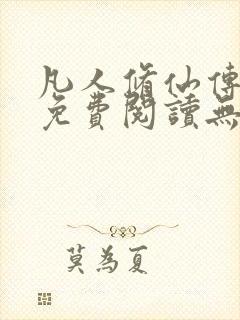 凡人脩仙傳
免費閱讀無
莫為夏